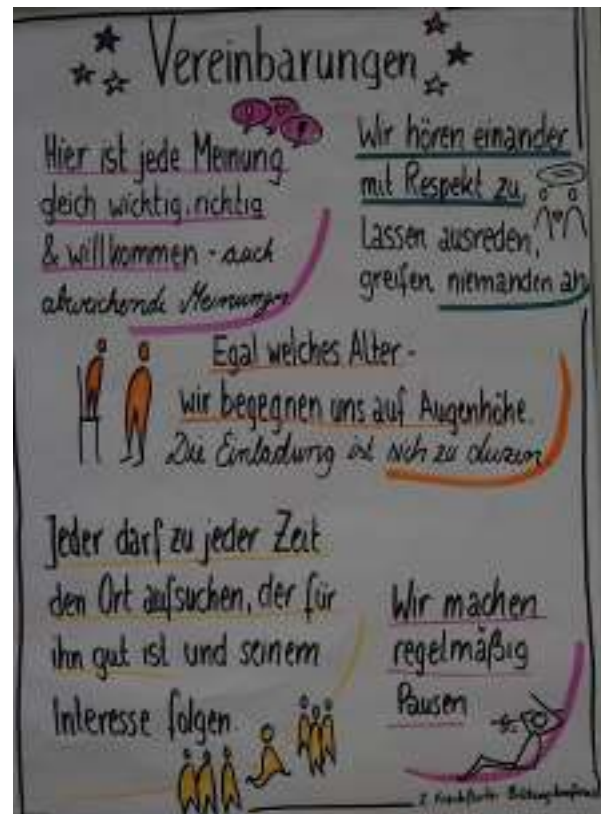 Vereinbarungen
Hier ist jede Meinung
gleich wichtig, richtig
& willkommen - auch
abweichende Meinungen
Wir hören einander
mit Respekt zu,
lassen ausreden,
greifen niemanden an
Egal welches Alter -
wir begegnen uns auf Augenhöhe.
Die Einladung ist sich zu duzen
Jeder darf zu jeder Zeit
den Ort aufsuchen, der für
ihn gut ist und seinem
Interesse folgen.
Wir machen
regelmäßig
Pausen
2. Frankfurter